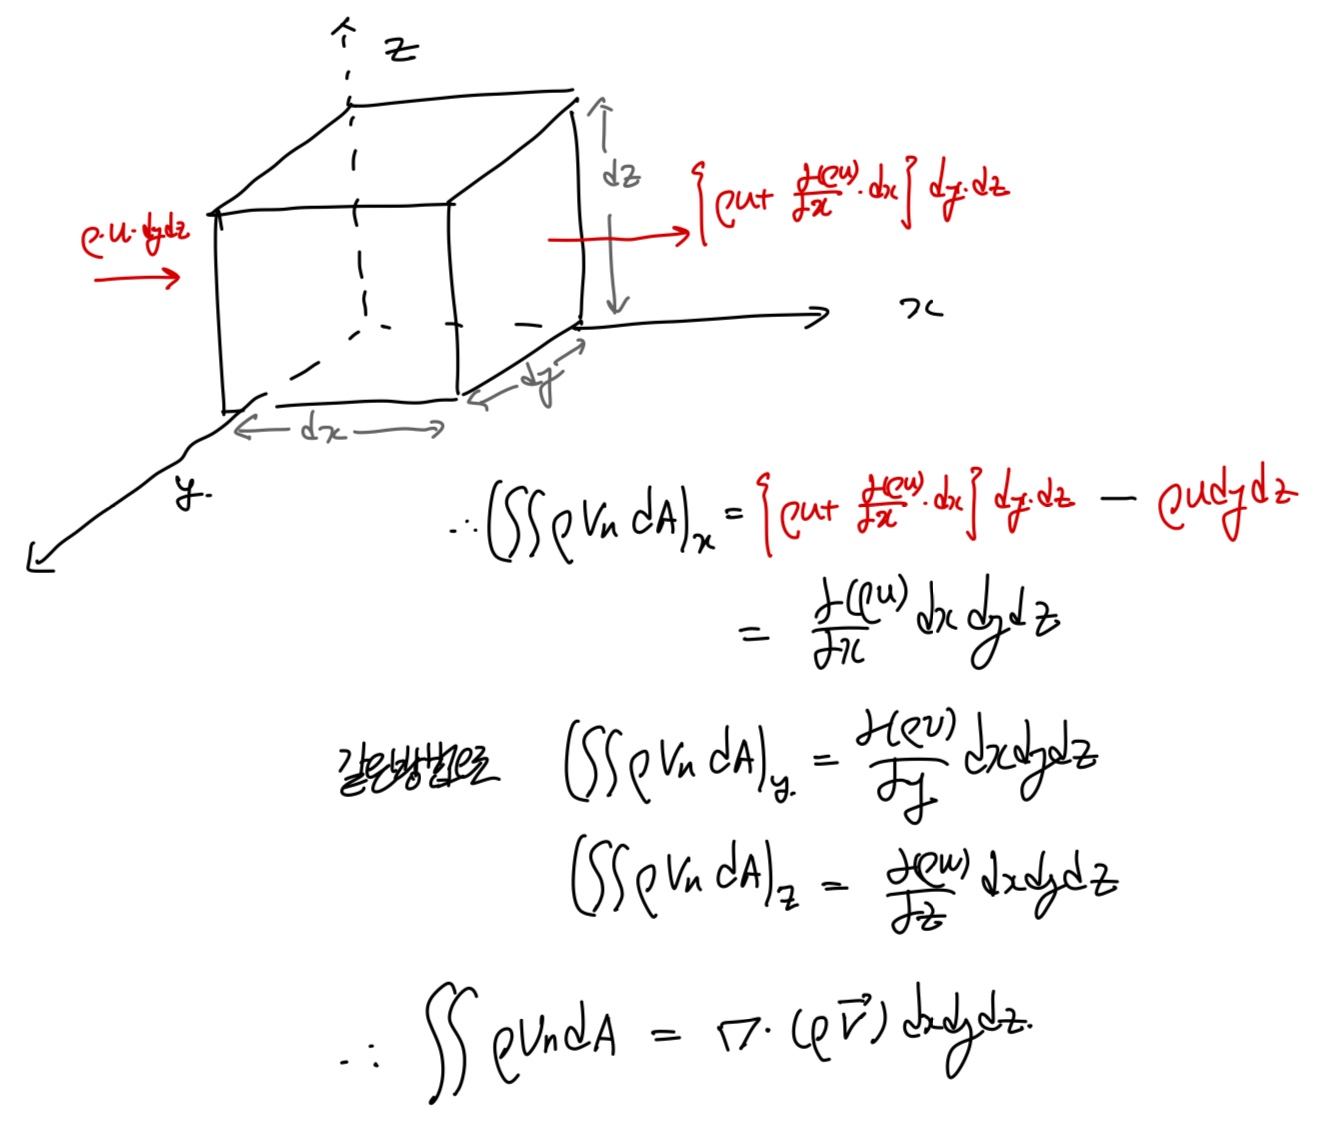 z
dz
{ρu + ∂(ρu)/∂x · dx} dy·dz
ρ·u·dydz
x
dy
dx
y.
∴ (∬ρVn dA)x = {ρu + ∂(ρu)/∂x · dx} dy·dz − ρudydz
= ∂(ρu)/∂x dx dydz
같은방법으로 (∬ρVn dA)y. = ∂(ρv)/∂y dxdydz
(∬ρVn dA)z = ∂(ρw)/∂z dxdydz
∴ ∬ρVndA = ∇·(ρV⃗) dxdydz.